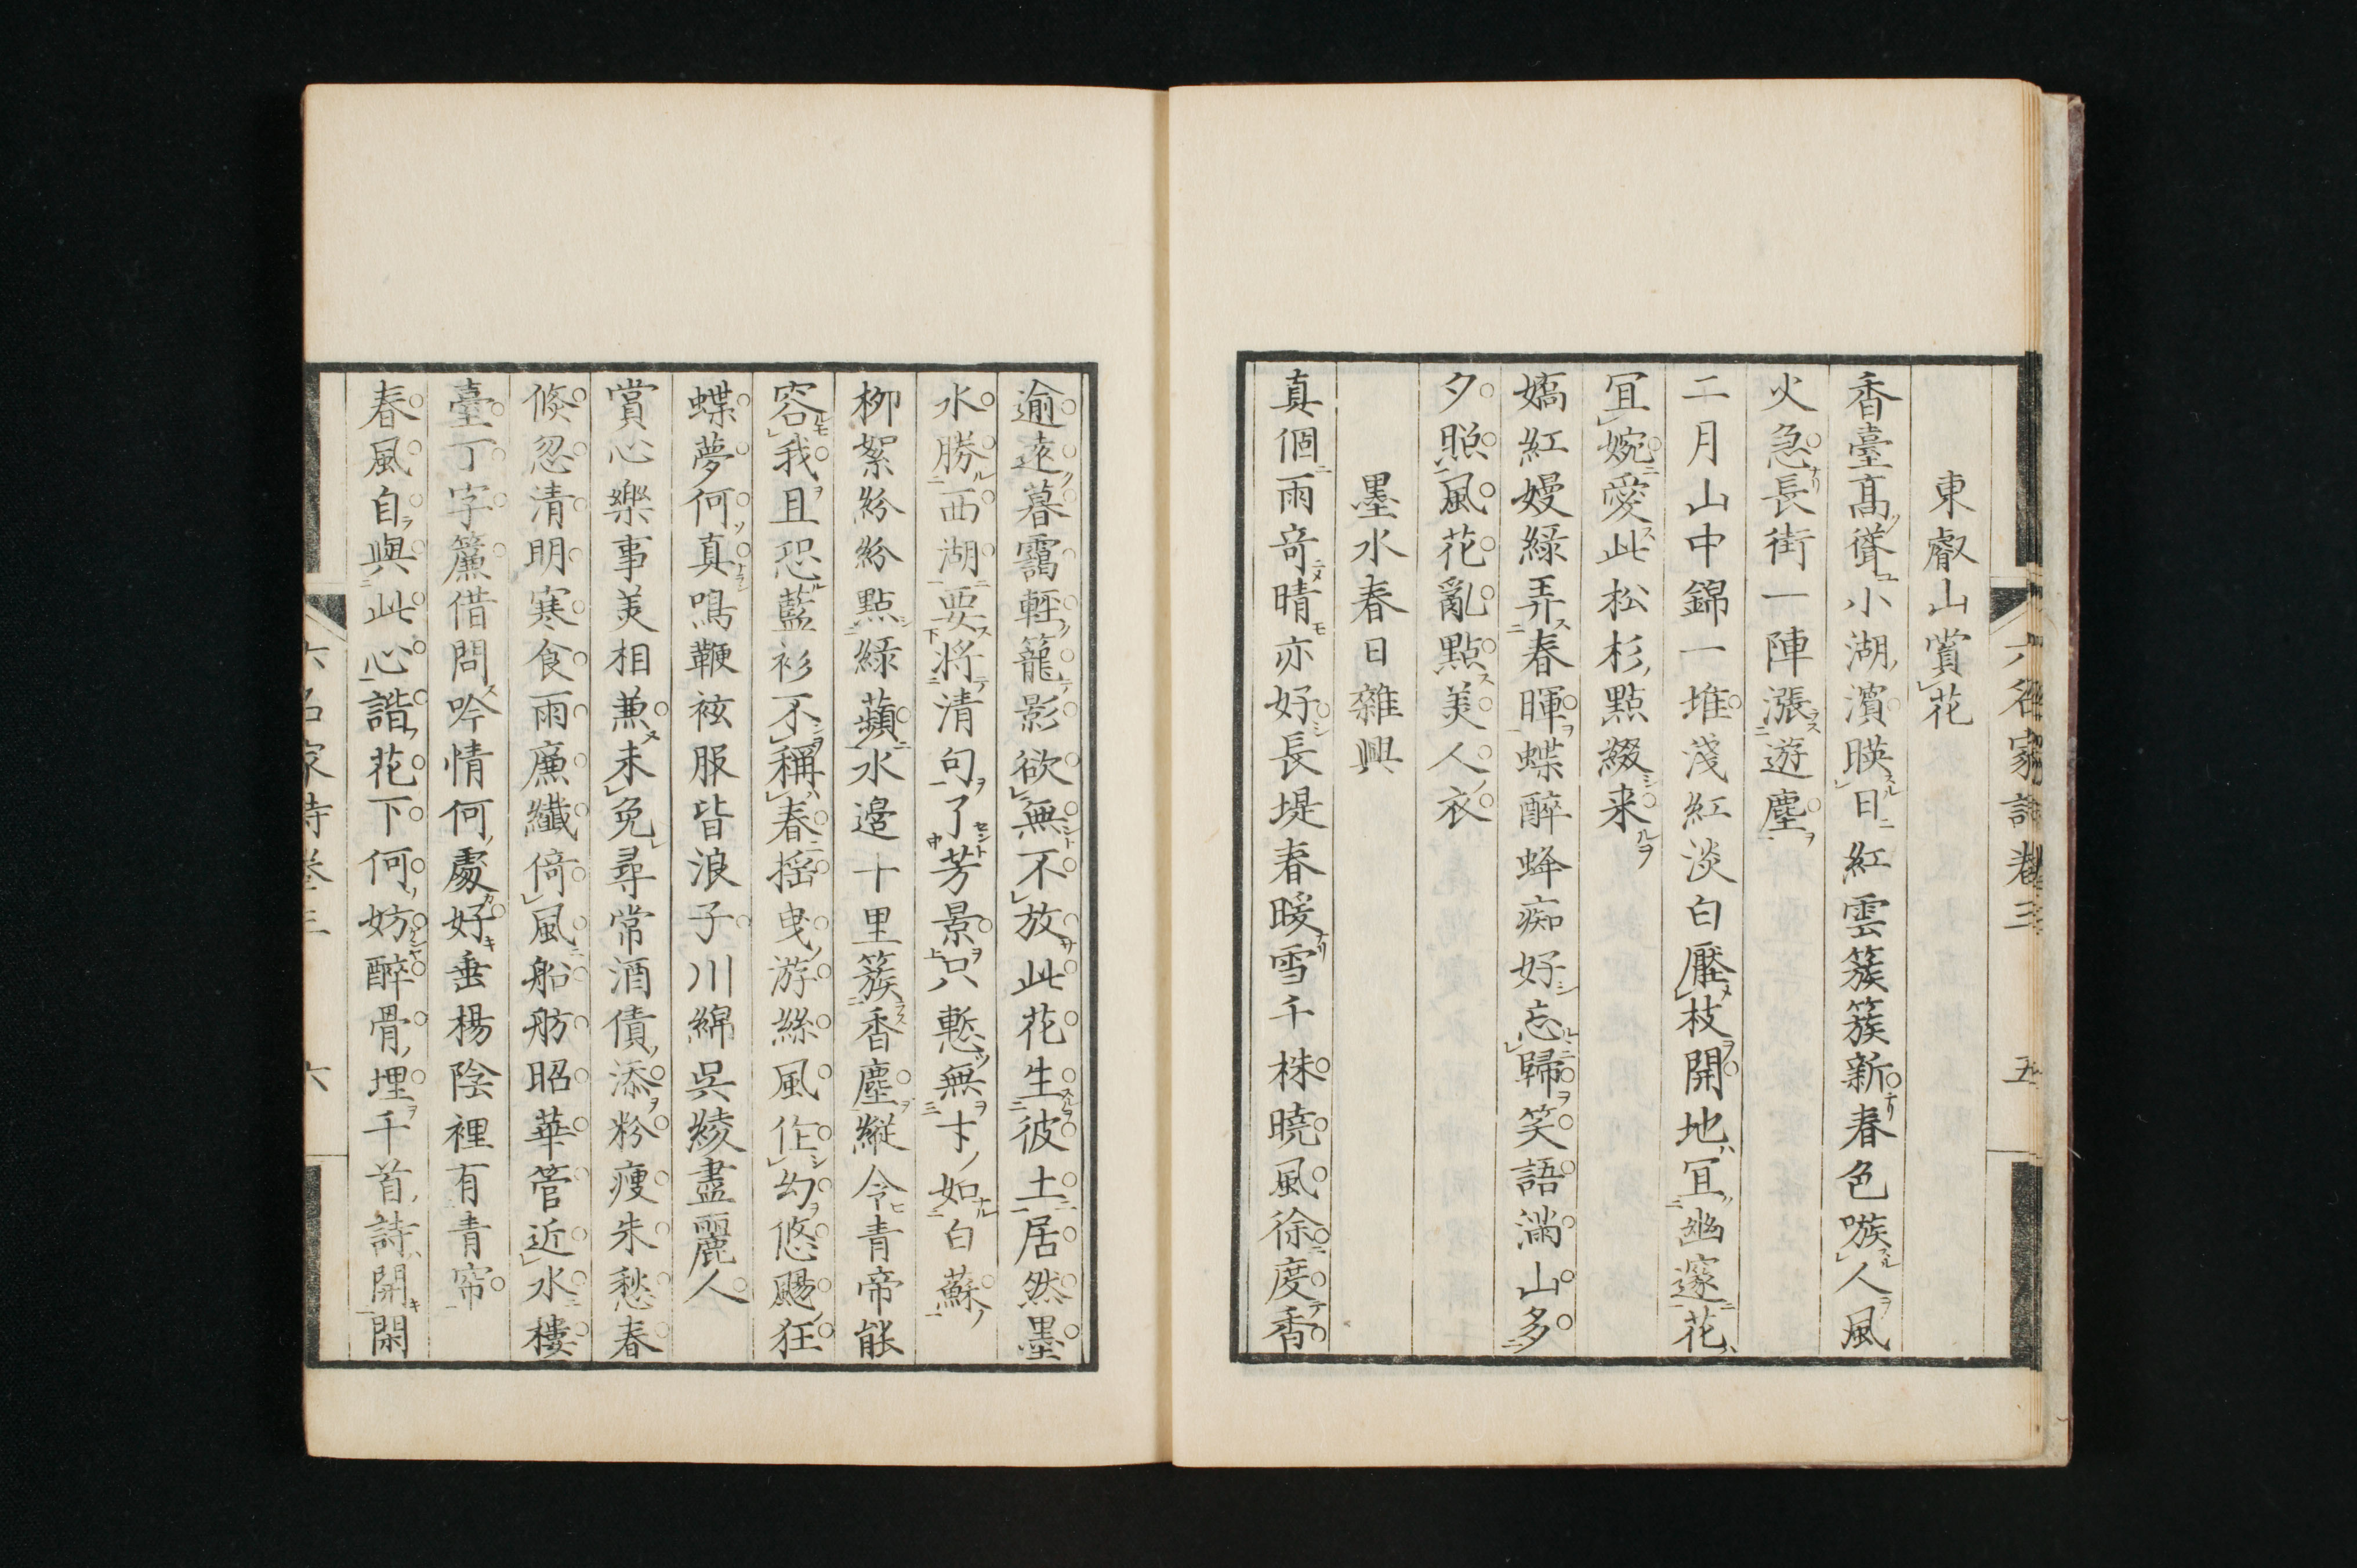 六名家詩卷三 五
東叡山賞花
香臺高聳小湖濱暎日紅雲簇簇新春色嗾人風
火急長街一陣漲遊塵
二月山中錦一堆淺紅淡白壓枝開地宜幽邃花
宜婉愛此松杉點綴来
嬌紅嫚綠弄春暉蝶醉蜂痴好忘歸笑語滿山多
夕照風花亂點美人衣
墨水春日雜興
真個雨竒晴亦好長堤春暖雪千株曉風徐度香
逾遠暮靄輕籠影欲無不放此花生彼土居然墨
水勝西湖要將清句了芳景只慙無才如白蘇
柳絮紛紛點綠蘋水邊十里簇香塵縱令青帝能
容我且恐藍衫不稱春搖曳游絲風作幻悠颺狂
蝶夢何真鳴鞭袨服皆浪子川綿吳綾盡麗人
賞心樂事美相兼未免尋常酒債添粉瘦朱愁春
倐忽清明寒食雨廉纖倚風船舫昭華管近水樓
臺丁字簾借問吟情何處好垂楊陰裡有青帘
春風自與此心諧花下何妨醉骨埋千首詩開閑
六名家詩卷三 六